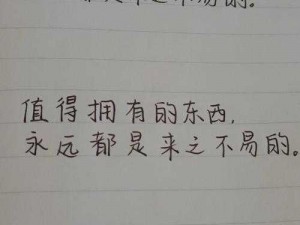 不易的。
值得拥有的东西,
永远都是来之不易的。